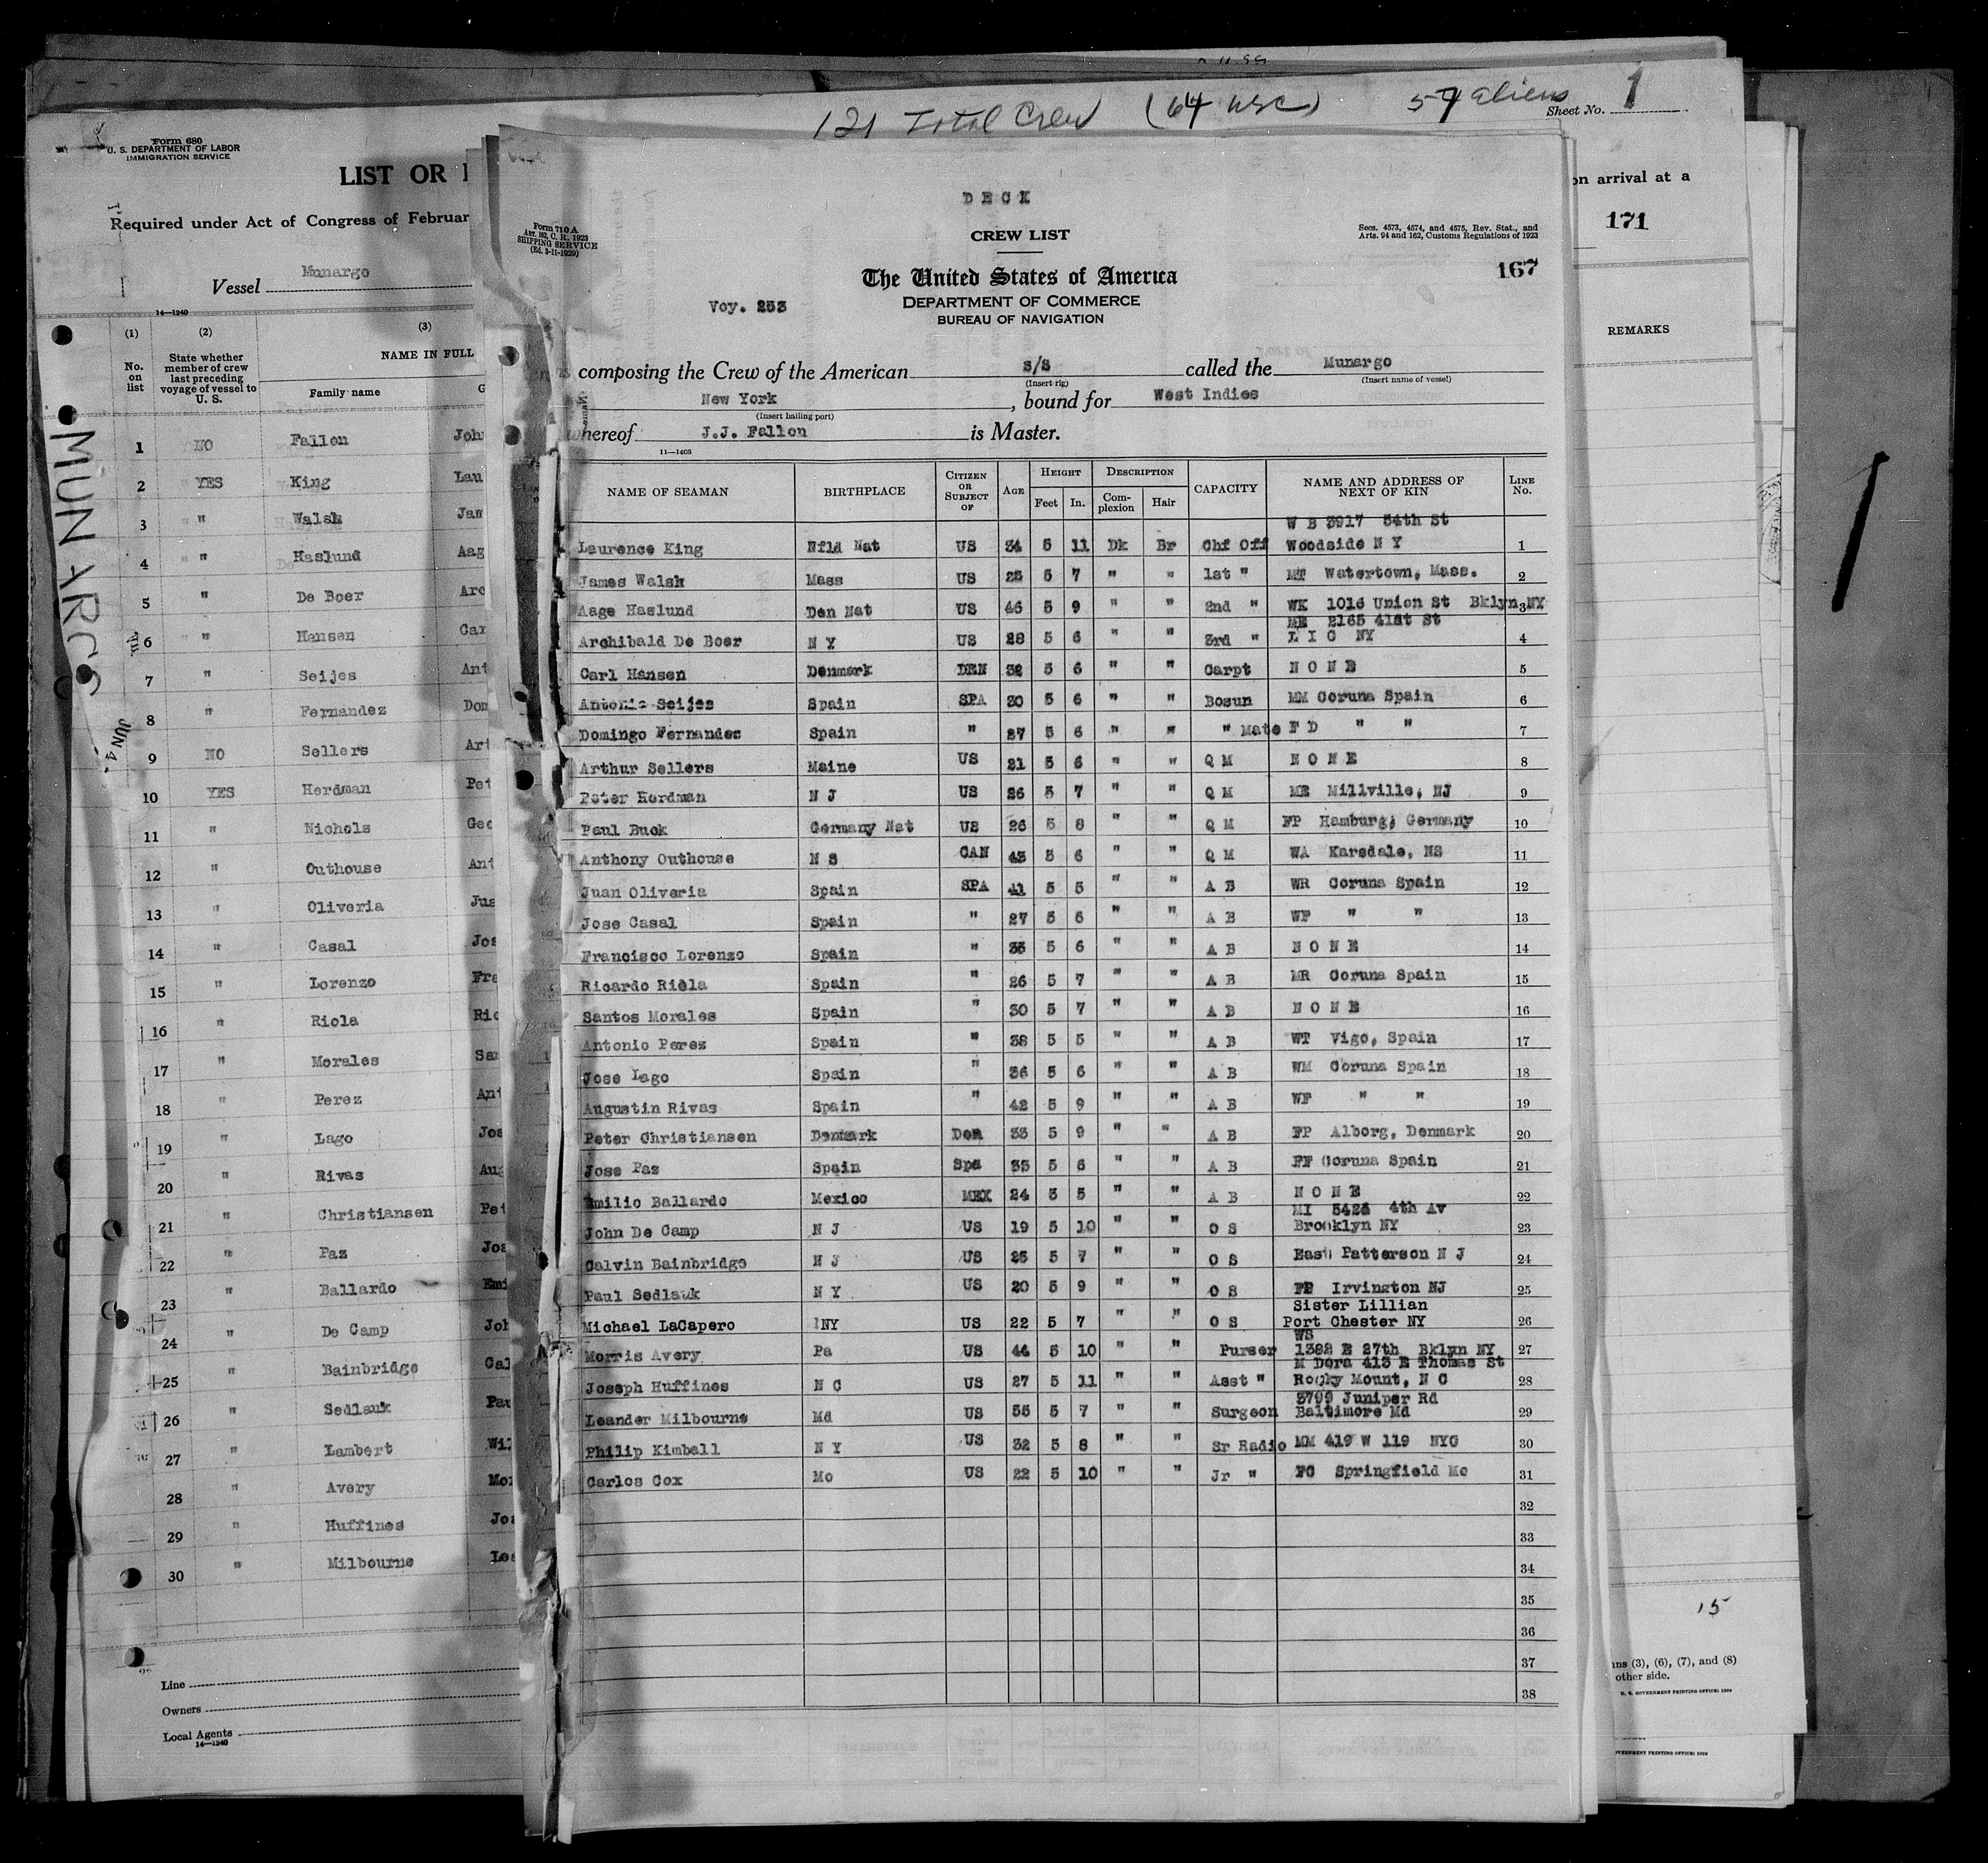 121 Total Crew (64 USC) 57 aliens
Sheet No. 1
Form 680
U. S. DEPARTMENT OF LABOR
IMMIGRATION SERVICE
LIST OR
Required under Act of Congress of Februar
Vessel Munargo
14—1240
(1) (2) (3)
No. on list State whether member of crew last preceding voyage of vessel to U. S. NAME IN FULL
Family name G
1 NO Fallon John
2 YES King Lau
3 " Walsh Jam
4 " Haslund Aag
5 " De Boer Arc
6 " Hansen Car
7 " Seijes Ant
8 " Fernandez Dom
9 NO Sellers Art
10 YES Herdman Pet
11 " Nichols Geo
12 " Outhouse Ant
13 " Oliveria Jua
14 " Casal Jos
15 " Lorenzo Fra
16 " Riola Ric
17 " Morales San
18 " Perez Ant
19 " Lago Jos
20 " Rivas Aug
21 " Christiansen Pet
22 " Paz Jos
23 " Ballardo Emi
24 " De Camp Joh
25 " Bainbridge Cal
26 " Sedlauk Pau
27 " Lambert Wil
28 " Avery Mor
29 " Huffines Jos
30 " Milbourne Lea
Line
Owners
Local Agents
14—1240
MUNARGO
JUN 4
DECK
Form 710 A
ART. 162, C. R. 1923
SHIPPING SERVICE
(Ed. 3-11-1929)
CREW LIST
Secs. 4573, 4574, and 4575, Rev. Stat., and
Arts. 94 and 162, Customs Regulations of 1923
167
The United States of America
DEPARTMENT OF COMMERCE
BUREAU OF NAVIGATION
Voy. 253
composing the Crew of the American S/S called the Munargo
(Insert rig) (Insert name of vessel)
New York, bound for West Indies
(Insert hailing port)
whereof J.J. Fallon is Master.
11—1403
NAME OF SEAMAN BIRTHPLACE CITIZEN OR SUBJECT OF AGE HEIGHT Feet In. DESCRIPTION Complexion Hair CAPACITY NAME AND ADDRESS OF NEXT OF KIN LINE No.
W B 3917 54th St
Laurence King Nfld Nat US 34 5 11 Dk Br Chf Off Woodside N Y 1
James Walsh Mass US 25 5 7 " " 1st " MT Watertown, Mass. 2
Aage Haslund Den Nat US 46 5 9 " " 2nd " WK 1016 Union St Bklyn NY 3
ME 2165 41st St
Archibald De Boer N Y US 28 5 6 " " 3rd " L I C NY 4
Carl Hansen Denmark DEN 32 5 6 " " Carpt NONE 5
Antonio Seijes Spain SPA 30 5 6 " " Bosun MM Coruna Spain 6
Domingo Fernandes Spain " 27 5 6 " " " Mate F D " " 7
Arthur Sellers Maine US 21 5 6 " " Q M NONE 8
Peter Herdman N J US 26 5 7 " " Q M ME Millville, NJ 9
Paul Buck Germany Nat US 26 5 8 " " Q M FP Hamburg, Germany 10
Anthony Outhouse N S CAN 43 5 6 " " Q M WA Karsdale, NS 11
Juan Oliveria Spain SPA 41 5 5 " " A B WR Coruna Spain 12
Jose Casal Spain " 27 5 6 " " A B WF " " 13
Francisco Lorenzo Spain " 35 5 6 " " A B NONE 14
Ricardo Riela Spain " 26 5 7 " " A B MR Coruna Spain 15
Santos Morales Spain " 30 5 7 " " A B NONE 16
Antonio Perez Spain " 38 5 5 " " A B WT Vigo, Spain 17
Jose Lago Spain " 36 5 6 " " A B WM Coruna Spain 18
Augustin Rivas Spain " 42 5 9 " " A B WF " " 19
Peter Christiansen Denmark Den 33 5 9 " " A B FP Alborg, Denmark 20
Jose Paz Spain Spa 35 5 6 " " A B FF Coruna Spain 21
Emilio Ballardo Mexico MEX 24 5 5 " " A B NONE 22
MI 5426 4th Av
John De Camp N J US 19 5 10 " " O S Brooklyn NY 23
Calvin Bainbridge N J US 25 5 7 " " O S East Patterson N J 24
Paul Sedlauk N Y US 20 5 9 " " O S FP Irvington NJ 25
Sister Lillian
Michael LaCapero NY US 22 5 7 " " O S Port Chester NY 26
WS
Morris Avery Pa US 44 5 10 " " Purser 1382 E 27th Bklyn NY 27
M Dora 413 E Thomas St
Joseph Huffines N C US 27 5 11 " " Asst " Rocky Mount, N C 28
3799 Juniper Rd
Leander Milbourne Md US 55 5 7 " " Surgeon Baltimore Md 29
Philip Kimball N Y US 32 5 8 " " Sr Radio MM 419 W 119 NYC 30
Carlos Cox Mo US 22 5 10 " " Jr " FC Springfield Mo 31
32
33
34
35
36
37
38
on arrival at a
171
REMARKS
15
ns (3), (6), (7), and (8)
other side.
U. S. GOVERNMENT PRINTING OFFICE: 1929